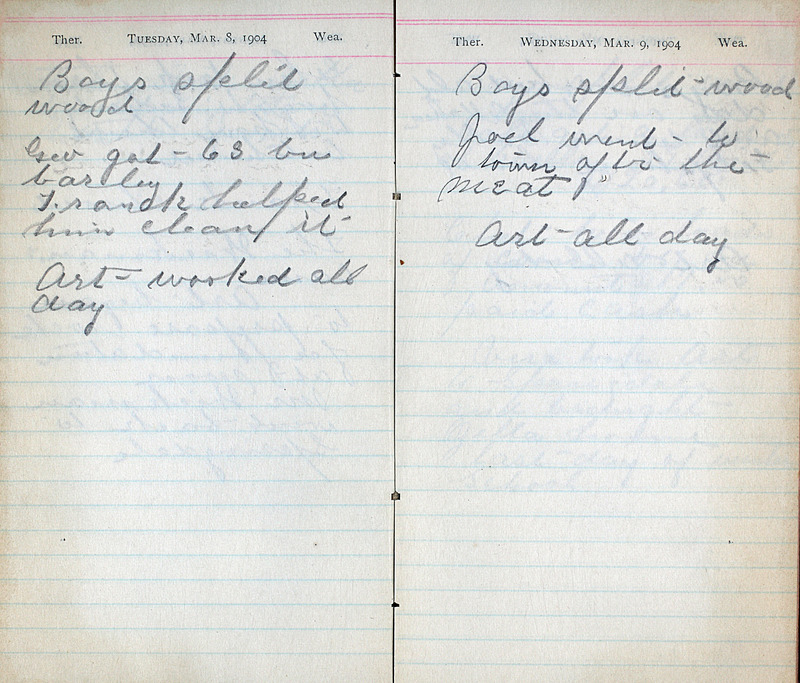 Ther. Tuesday, Mar. 8, 1904 Wea.
Boys split
wood
Geo got 63 bu
barley
Franck helped
him clean it
Art worked all
day
Ther. Wednesday, Mar. 9, 1904 Wea.
Boys split wood
Joel went to
town after the
meat
Art all day